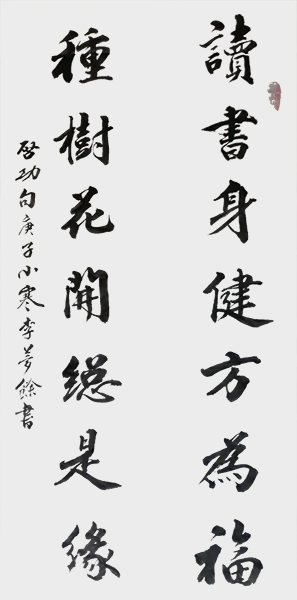 讀書身健方為福
種樹花開總是緣
啓功句庚子小寒李夢餘書